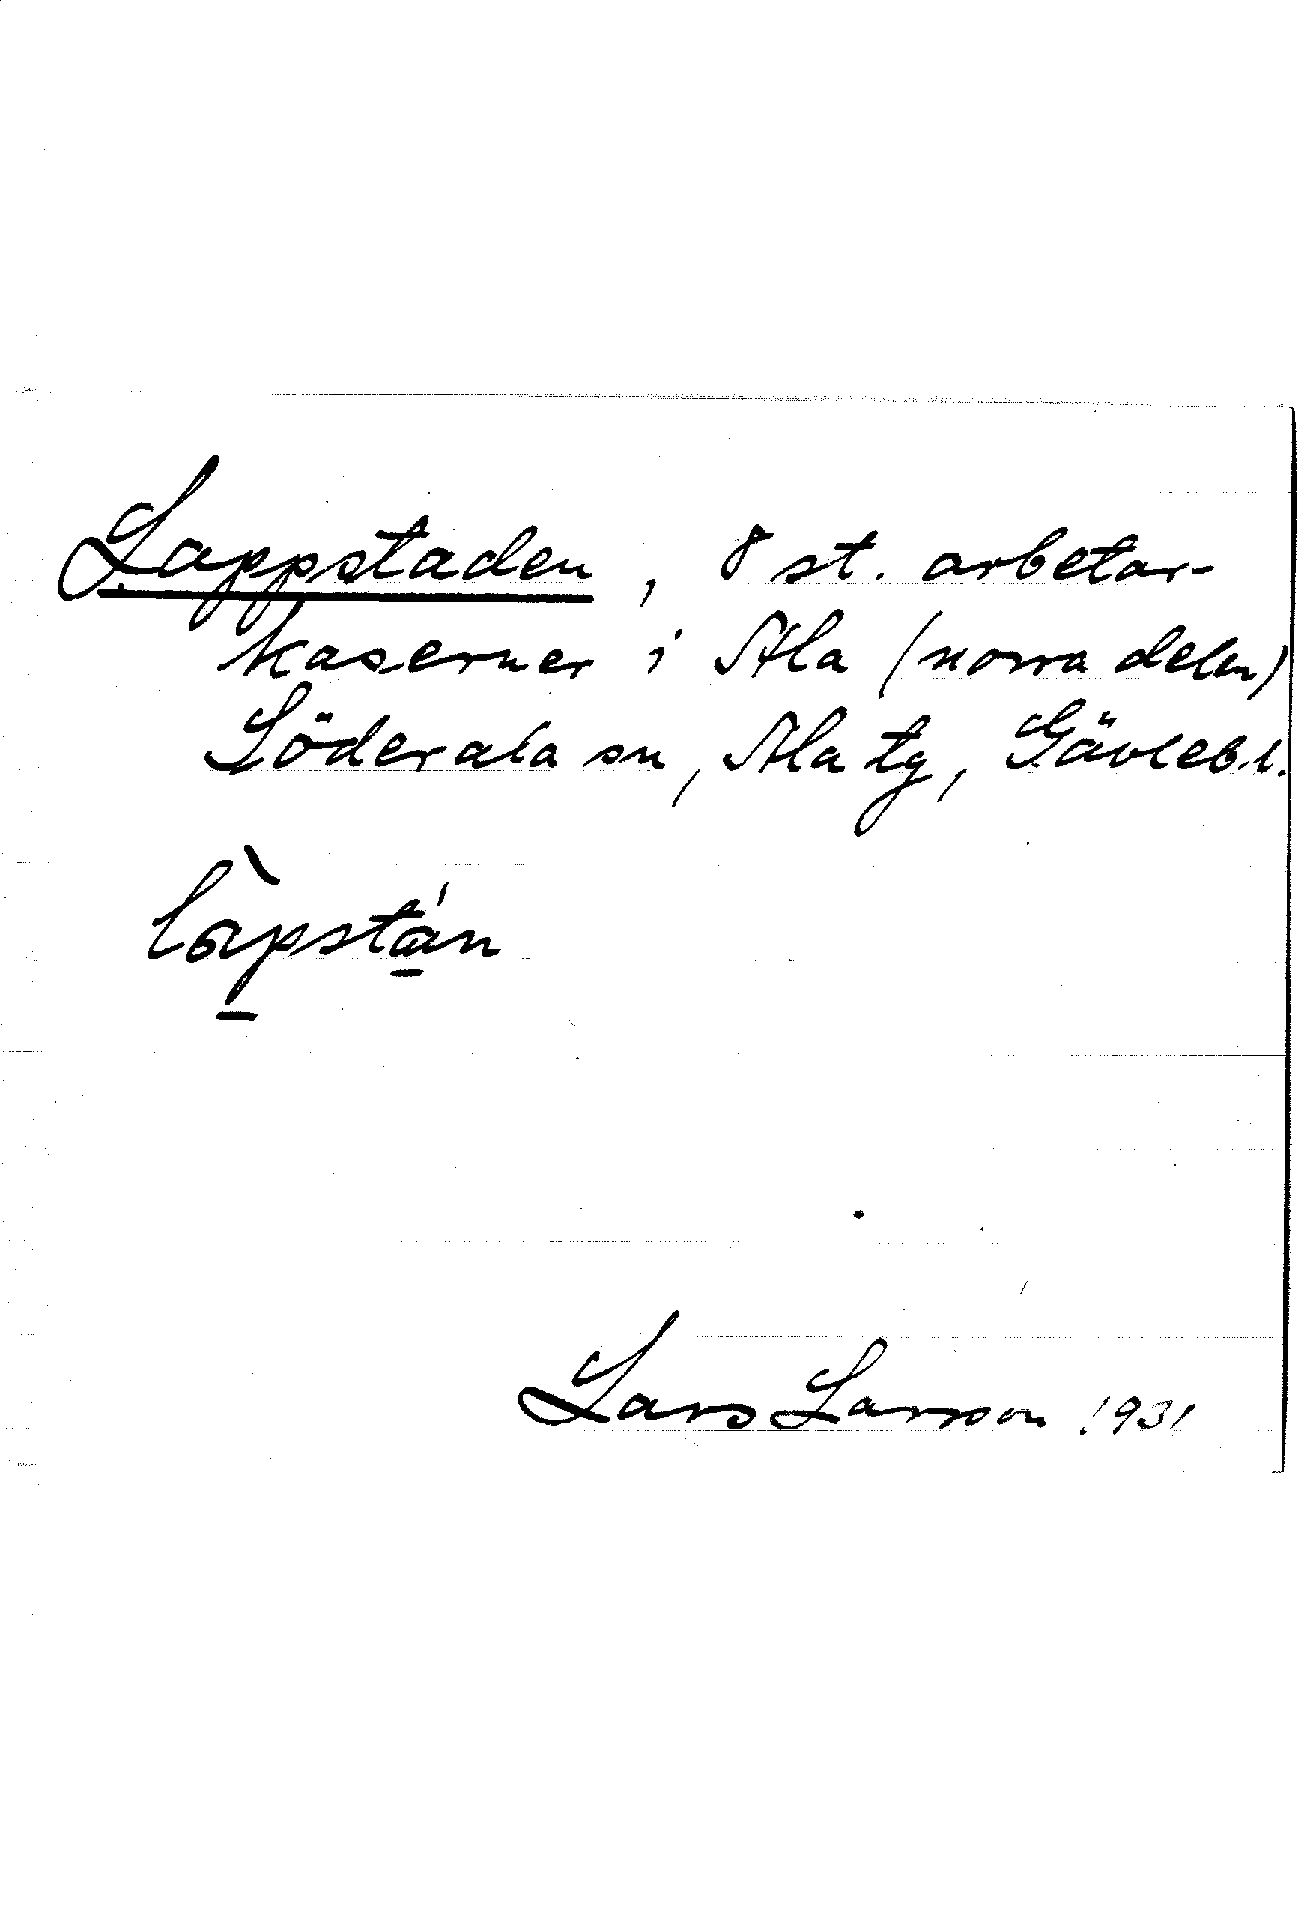 Lappstaden, 8 st. arbetar-
kaserner i Ala (norra delen)
Söderala sn, Ala tg, Gävleb.l.
làpstán
Lars Larsson 1931